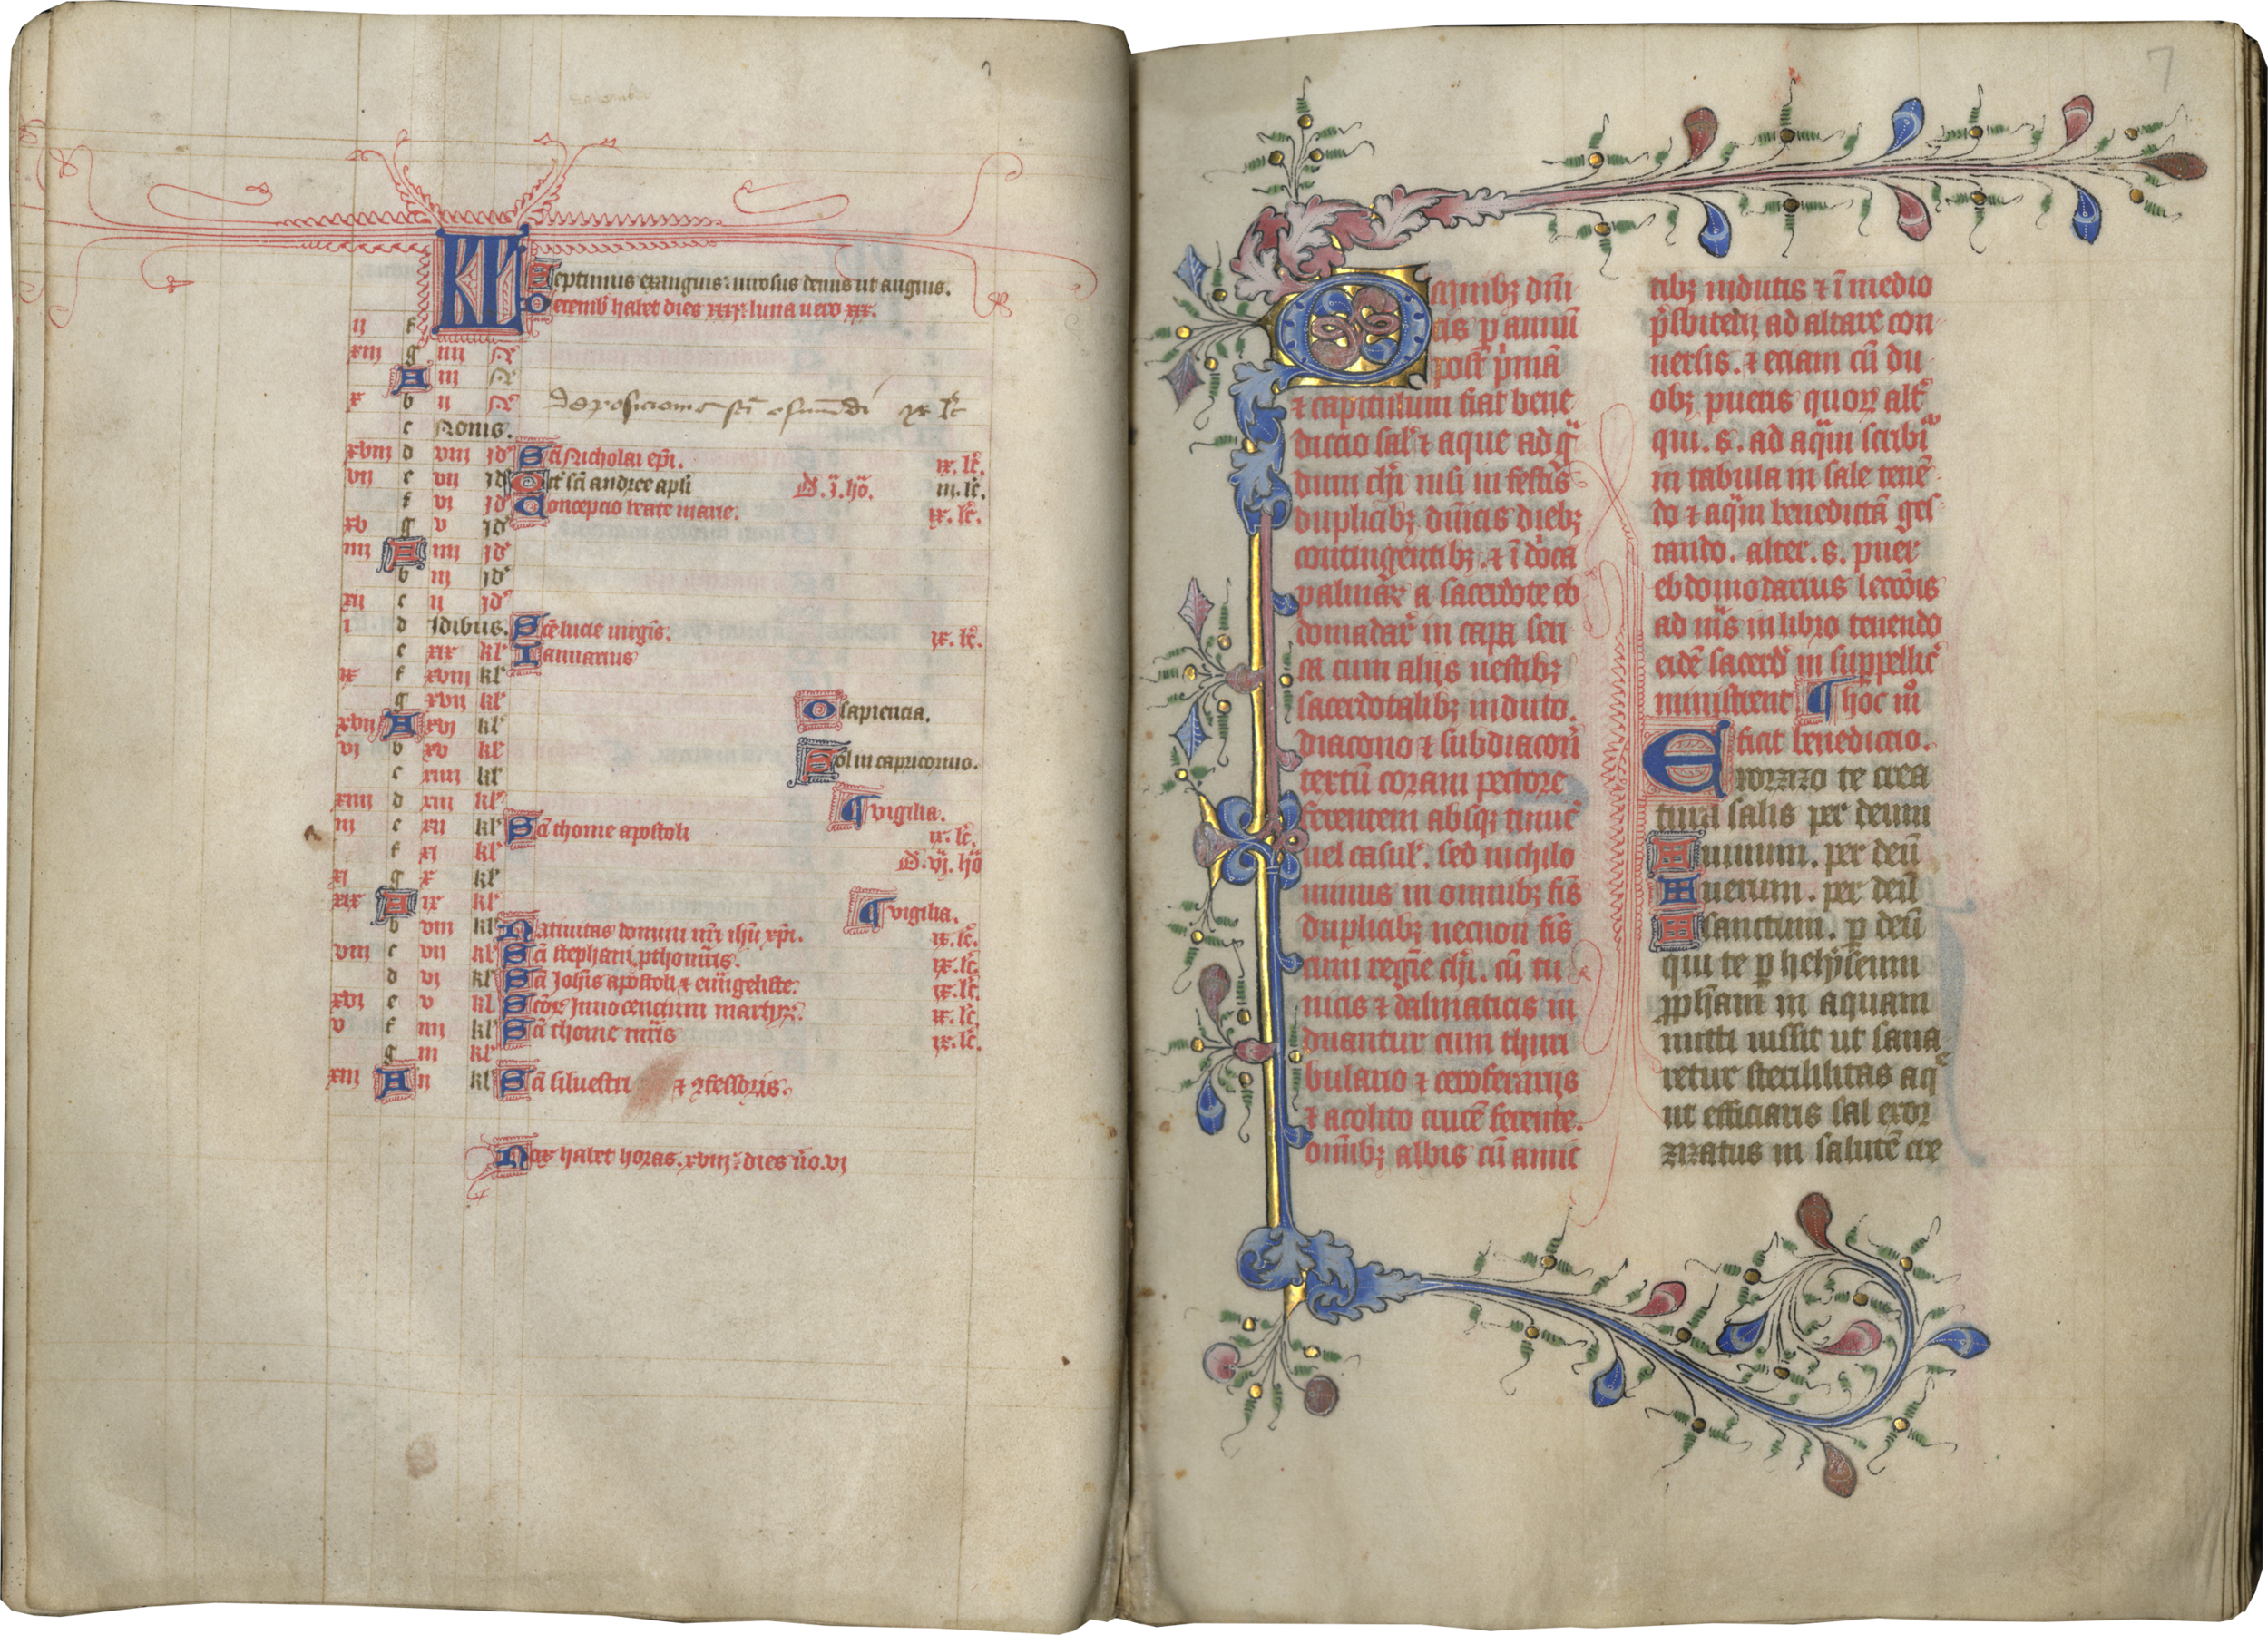 7
KL Septimus exanguis: uirosus denus ut anguis.
Decemb habet dies xxxj. luna uero xxx.
ij f
xiij g iiij N
A iij N
x b ij N Deposicione sci osmundi ix lc
c Nonis.
xviij d viij id Sci Nicholai epi. ix. lc.
vij e vij id Oct sci andree apli D. j. ho. iij. lc.
f vj id Concepcio beate marie. ix. lc.
xv g v id
iiij A iiij id
b iij id
xij c ij id
i d idibus. Sce lucie uirgis. ix. lc.
e xix kl Ianuarius
ix f xviij kl
g xvij kl O sapiencia.
xvij A xvj kl
vj b xv kl Sol in capricorno.
c xiiij kl
xiiij d xiij kl vigilia.
iij e xij kl Sci thome apostoli ix. lc.
f xj kl D. vj. ho
xj g x kl
xix A ix kl vigilia.
b viij kl Natiuitas domini nri ihu xpi. ix. lc.
viij c vij kl Sci stephani pthomris. ix. lc.
d vj kl Sci Johis apostoli et euangeliste. ix. lc.
xvj e v kl Scor Innocencium martyr. ix. lc.
v f iiij kl Sci thome mris ix. lc.
g iij kl
xiij A ij kl Sci siluestri et confessoris.
Nox habet horas. xviij. dies uo. vj
Omnibz dni
cis p annu
post prima
et capitulum fiat bene
diccio sal et aque ad q
dum chri nisi in festis
duplicibz dnicis diebz
contingentibz. et i dnica
palmar a sacerdote eb
domadar in capa seri
ca cum alijs uestibz
sacerdotalibz induto.
diacono et subdiacon
textu coram pectore
ferentem absqz tunic
uel casul. sed nichilo
minus in omnibz fis
duplicibz necnon fis
cum regie chri. cu tu
nicis et dalmaticis in
duantur cum thuri
bulario et ceroferarijs
et acolito cruce ferente.
omibz albis cu amic
tibz indutis et i medio
prsbiterij ad altare con
uersis. et eciam cu du
obz pueris quor alt
qui. s. ad aqam scribi
in tabula in sale tene
do et aqam benedicta ges
tando. alter. s. puer
ebdomodarius lecois
ad mis in libro tenendo
eide sacerd in suppellic
ministrent ¶ hoc mo
fiat benediccio.
Exorzizo te crea
tura salis per deum
uiuum. per deu
uerum. per deu
sanctum. p deu
qui te p helyseum
ppham in aquam
mitti iussit ut sana
retur sterililitas aq
ut efficiaris sal exor
zizatus in salute cre